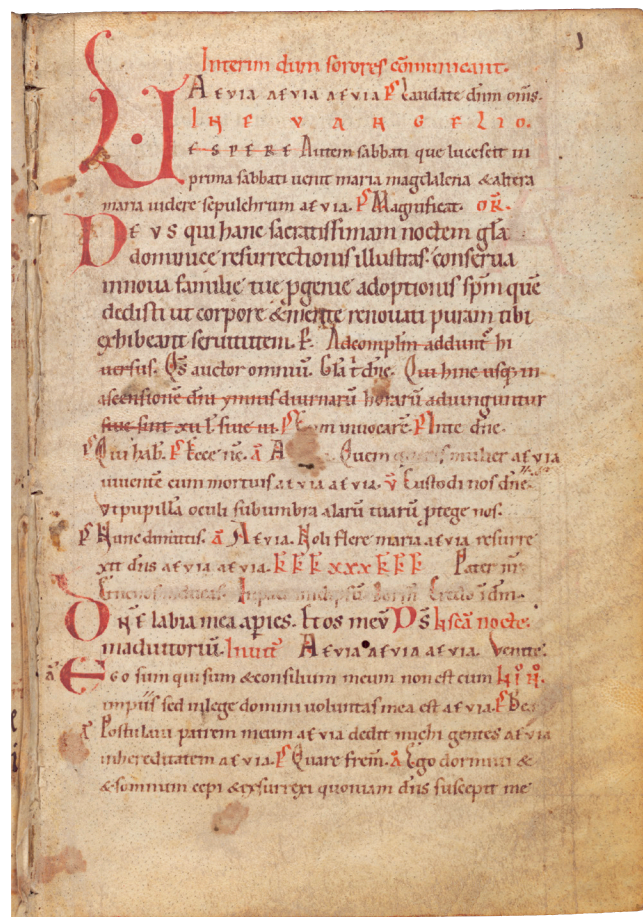 1
Interim dum sorores cōmunicant.
Aevia aevia aevia P̄s Laudate dnm omīs.
IN EVANGELIO.
VESPERE Autem sabbati que lucescit in
prima sabbati venit maria magdalena & altera
maria videre sepulchrum aevia. P̄s Magnificat. OR̄.
DEVS qui hanc sacratissimam noctem glā
dominice resurrectionis illustras conserva
innova familie tue pgenie adoptionis spm quē
dedisti ut corpore & mente renovati puram tibi
exhibeant servitutem. P. Ad complin addunt hi
versus. Qs auctor omniū. Glā t dne. Qui hinc usq; in
ascensionē dni ymnis diurnarū horarū adiunguntur
sive sint xii l sive iii. P̄s Cum invocarē. P̄s In te dne.
P̄s Qui hab. P̄s Ecce nc. ā A Quem queris mulier aevia
viventē cum mortuis aevia aevia. v̄ Custodi nos dne
vt pupillā oculi sub umbra alarū tuarū ptege nos.
P̄s Nunc dimittis. ā Aevia. Noli flere maria aevia resurre
xit dns aevia aevia. k k k xxx k k k Pater nr̄
In pace in idipsū. Dorm. Credo ī dm.
DNE labia mea apies. Et os meū DS In scā nocte.
in adiutoriū. Invit Aevia aevia aevia. Venite.
ā EGO sum qui sum & consilium meum non est cum IN I N.
impiis sed in lege domini voluntas mea est aevia. P̄s Bea
ā Postulavi patrem meum aevia dedit michi gentes aevia
in hereditatem aevia. P̄s Quare frem. ā Ego dormivi &
& somnum cepi & exsurrexi quoniam dns suscepit me